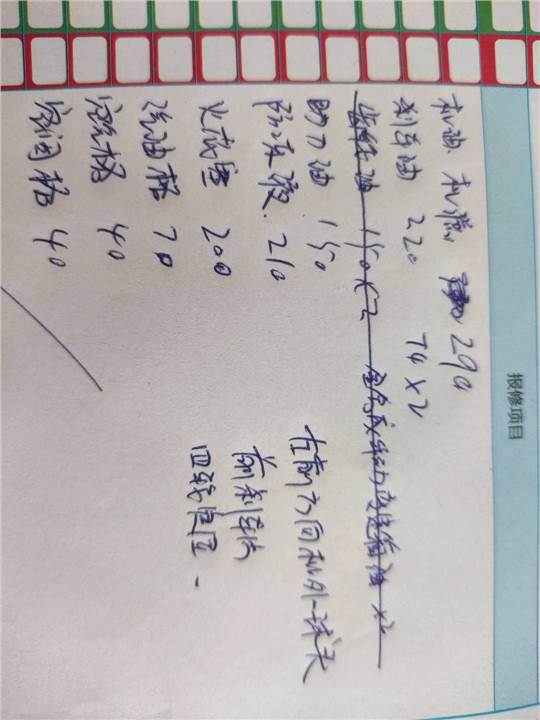 报修项目
机油 机滤 290
刹车油 220 74×2
助力油 150
防冻液 210
火花塞 200
汽油格 70
空气格 40
空调格 40
左前方向机外球头
前刹车片
四轮定位